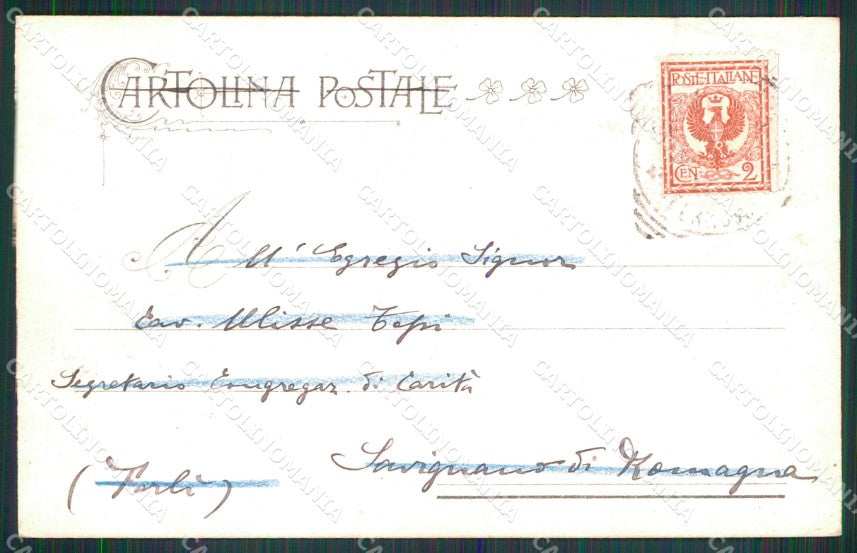 CARTOLINA POSTALE
POSTE·ITALIANE
CEN 2
All' Egregio Signor
Cav. Ulisse Topi
Segretario Congregaz. di Carità
Savignano di Romagna
(Forlì)
CARTOLINOMANIA